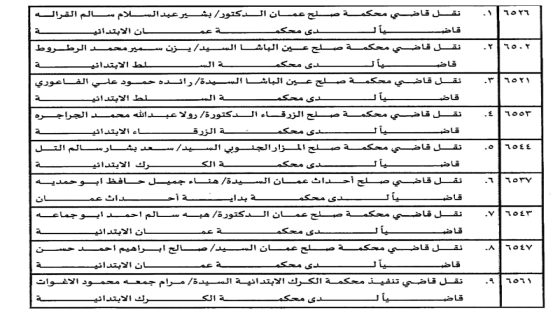 ٦٥٢٦ ١. نقل قاضي محكمة صلح عمان الدكتور/ بشير عبدالسلام سالم القراله
قاضياً لدى محكمة عمان الابتدائية
٦٥٠٢ ٢. نقل قاضي محكمة صلح عين الباشا السيد/ يزن سمير محمد الرطروط
قاضياً لدى محكمة السلط الابتدائية
٦٥٢١ ٣. نقل قاضي محكمة صلح عين الباشا السيدة/ رانده حمود علي الفاعوري
قاضياً لدى محكمة السلط الابتدائية
٦٥٥٣ ٤. نقل قاضي محكمة صلح الزرقاء الدكتورة/ رولا عبدالله محمد الجراجره
قاضياً لدى محكمة الزرقاء الابتدائية
٦٥٤٤ ٥. نقل قاضي محكمة صلح المزار الجنوبي السيد/ سعد بشار سالم التل
قاضياً لدى محكمة الكرك الابتدائية
٦٥٣٧ ٦. نقل قاضي صلح أحداث عمان السيدة/ هناء جميل حافظ ابو حمديه
قاضياً لدى محكمة بداية أحداث عمان
٦٥٤٣ ٧. نقل قاضي محكمة صلح عمان الدكتورة/ هبه سالم احمد ابو جماعه
قاضياً لدى محكمة عمان الابتدائية
٦٥٤٧ ٨. نقل قاضي محكمة صلح عمان السيد/ صالح ابراهيم احمد حسن
قاضياً لدى محكمة عمان الابتدائية
٦٥٦١ ٩. نقل قاضي تنفيذ محكمة الكرك الابتدائية السيدة/ مرام جمعه محمود الاغوات
قاضياً لدى محكمة الكرك الابتدائية